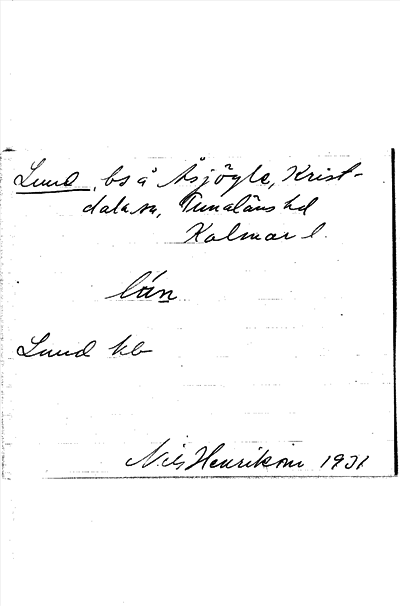 Lund, bs å Åsjögle, Krist-
dala sn, Tunaläns hd
Kalmar l.
lún
Lund kb
Nils Henrikson 1931